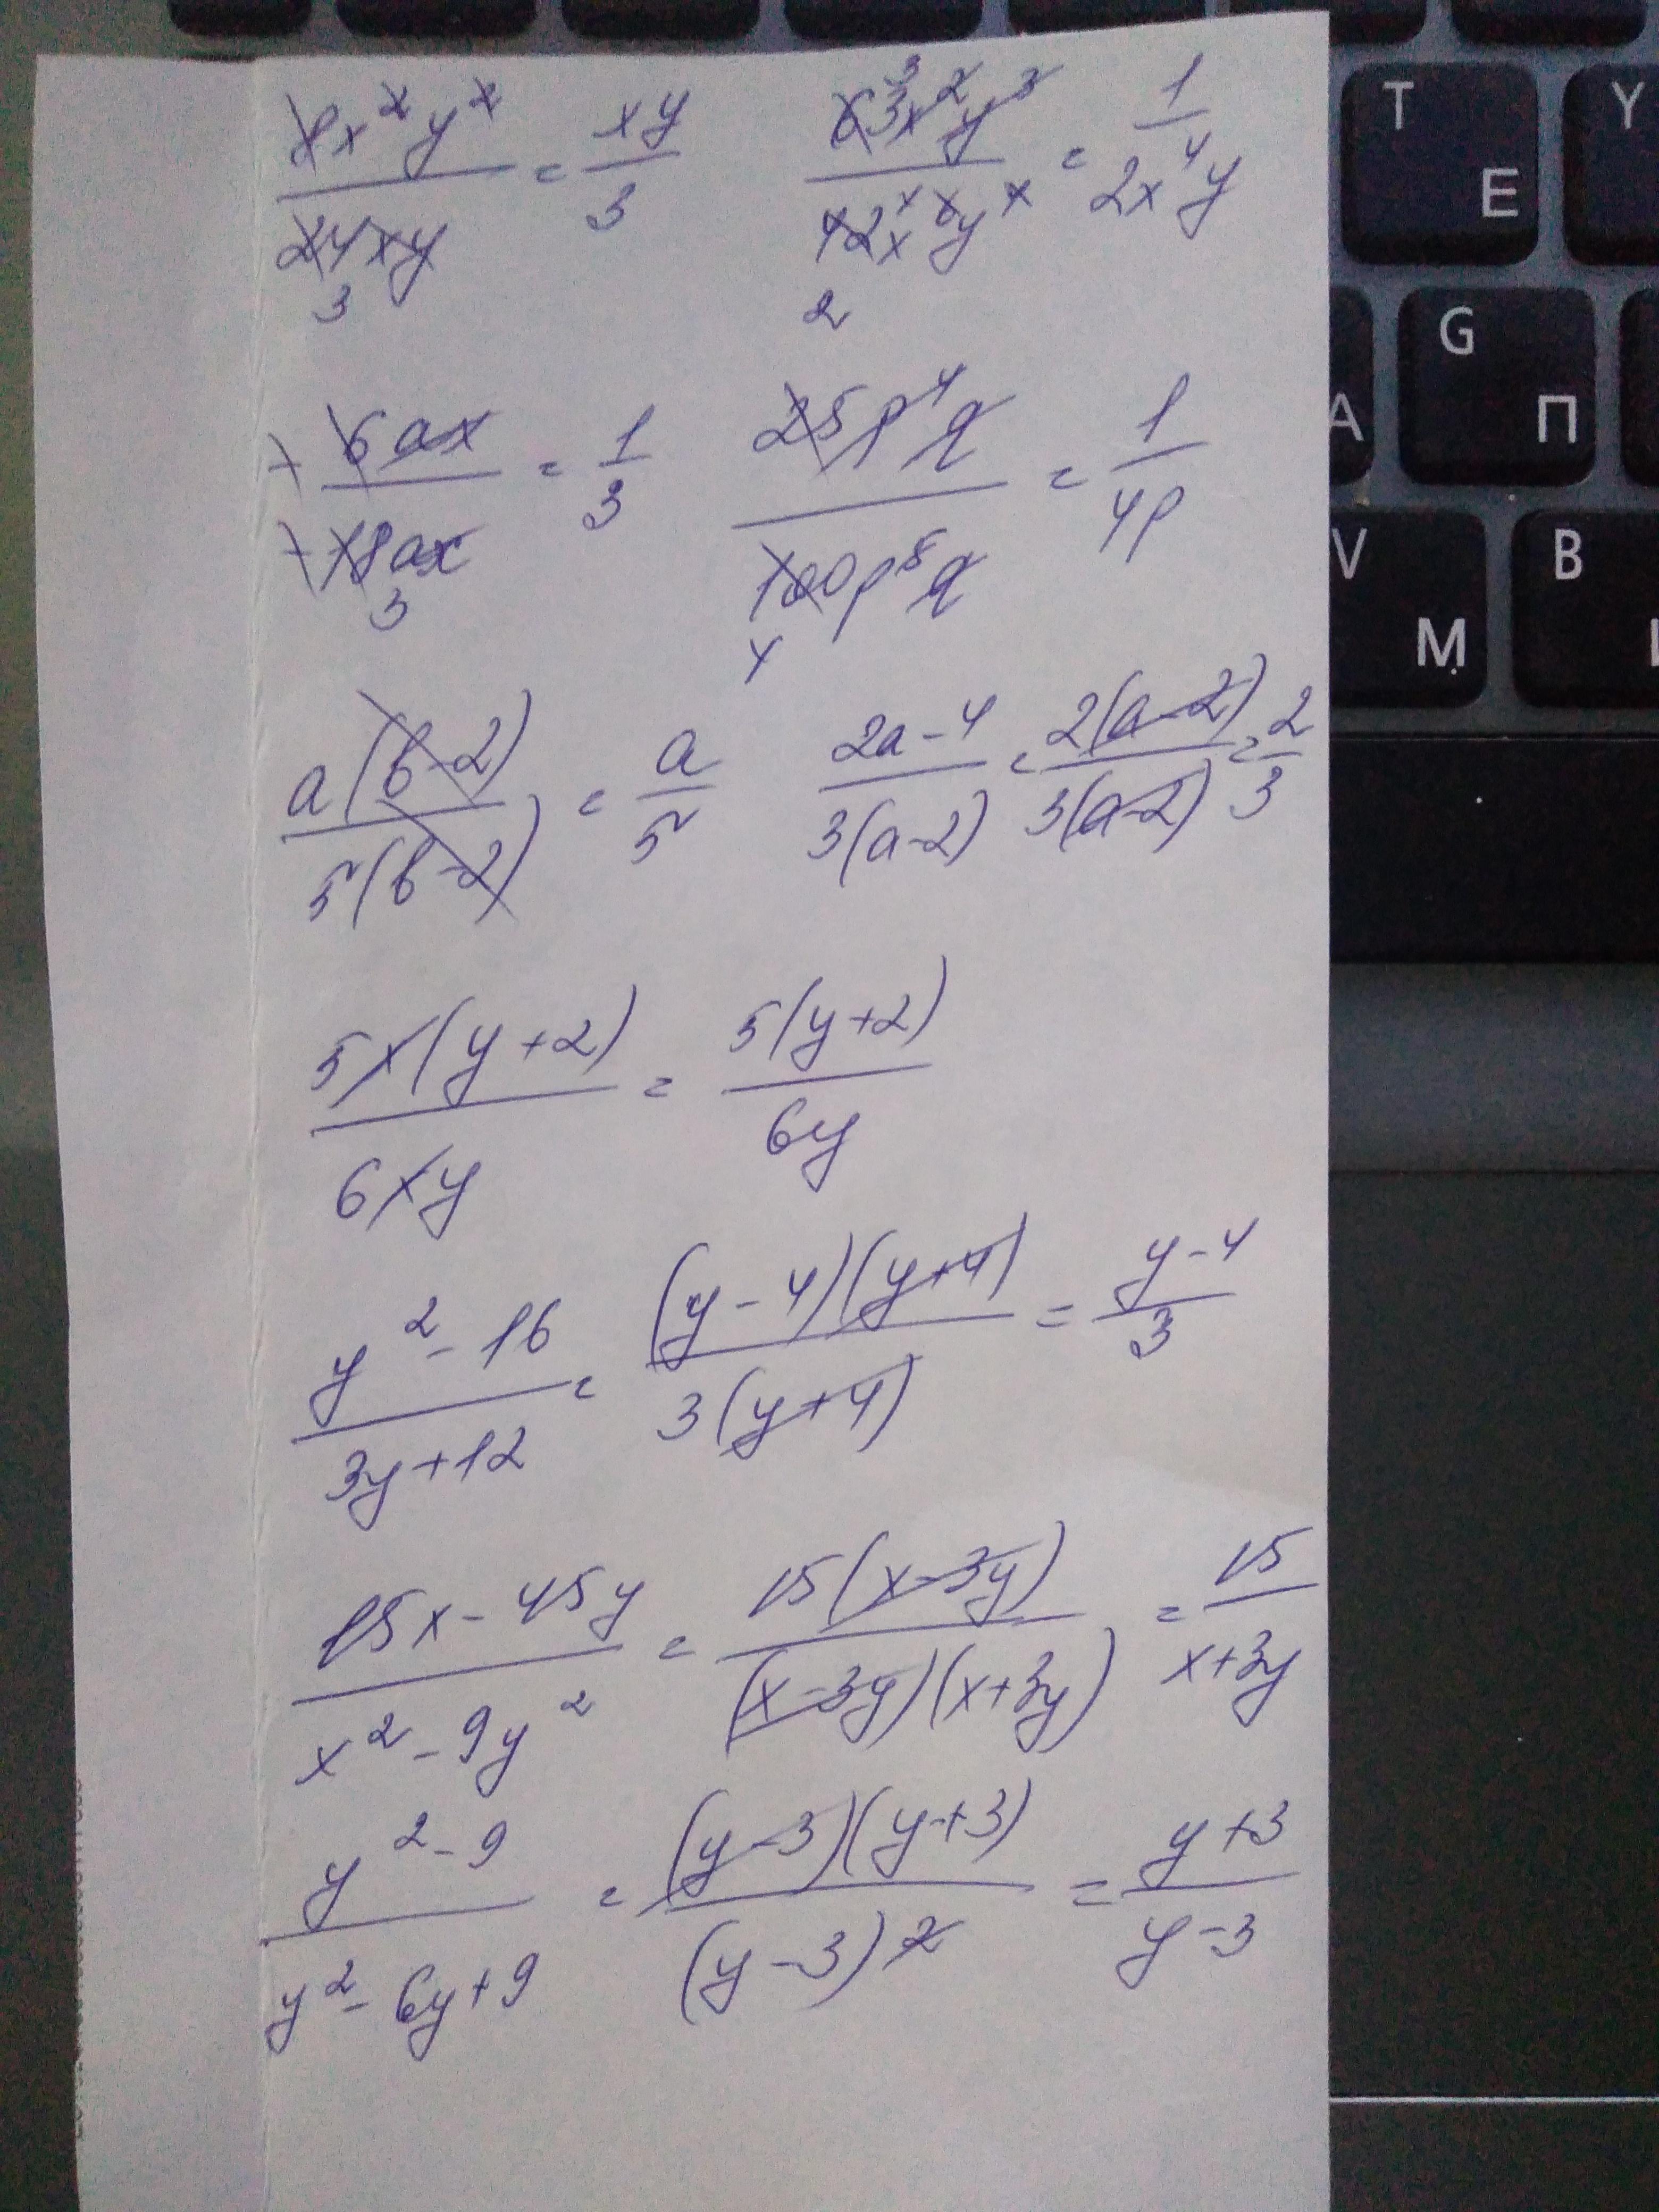 8x²y²/24xy = xy/3 63x²y³/42x⁶y⁴ = 1/2x⁴y
3 3 2
-6ax/-18ax = 1/3 25p⁴q/100p⁵q = 1/4p
3 4
a(b-2)/5(b-2) = a/5 2a-4/3(a-2) = 2(a-2)/3(a-2) = 2/3
5x(y+2)/6xy = 5(y+2)/6y
y²-16/3y+12 = (y-4)(y+4)/3(y+4) = y-4/3
15x-45y/x²-9y² = 15(x-3y)/(x-3y)(x+3y) = 15/x+3y
y²-9/y²-6y+9 = (y-3)(y+3)/(y-3)² = y+3/y-3
T E
Y
A
G П
V M
B